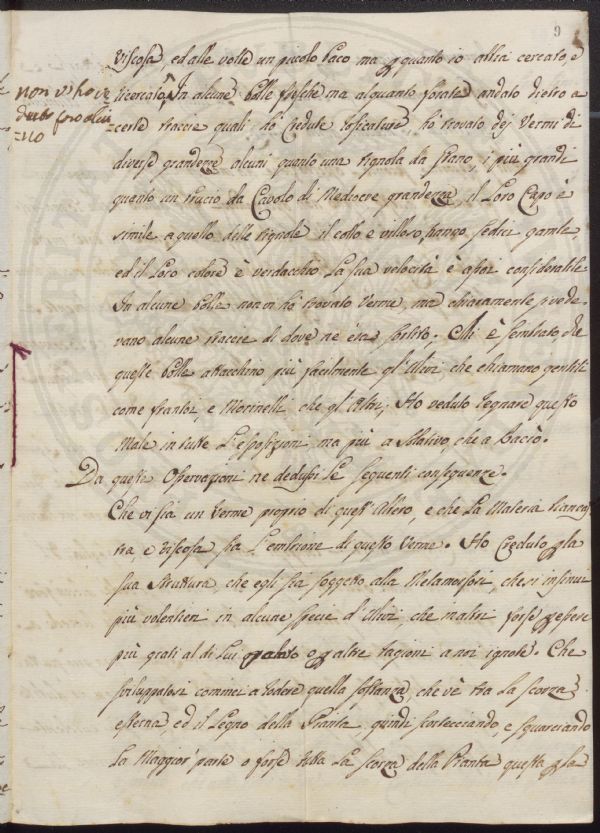 9
viscosa, ed alle volte un picolo baco ma per quanto io abbia cercato e
ricercato, In alcune bolle fresche ma alquanto forate andato dietro a
non vi ho ve
duto foro alcu
=no
certe traccie quali ho credute tosicature, ho trovato dej Vermi di
diverse grandezze alcuni quanto una tignola da grano, i più grandi
quanto un brucio da Cavolo di mediocre grandezza, il Loro Capo è
simile a quello delle tignole il collo è villoso, hanno sedici gambe,
ed il Loro colore è verdacchio La sua velocità è assai considerabile
In alcune bolle non vi hò trovato Verme, ma chiaramente si vede-
vano alcune traccie di dove ne era sortito. Mi è sembrato, che
queste bolle attacchino più facilmente gl'Ulivi che chiamano gentili
come frantoi, e Morinelli che gl'Altri; Ho veduto regnare questo
Male in tutte L'esposizioni ma più a Solativo, che a Bacìo.
Da queste Osservazioni ne dedussi Le seguenti conseguenze.
Che vi sia un Verme proprio di quest'Albero, e che La Materia biancas
tra e viscosa sia L'embrione di questo Verme. Ho Creduto per la
sua struttura, che egli sia soggetto alla Metamorfosi, che si insinui
più volentieri in alcune specie d'Ulivi, che in altri forse per essere
più grati al di Lui palato o per altre ragioni a noi ignote. Che
sviluppatosi cominci a rodere quella sostanza, che vè tra La scorza
esterna ed il Legno della Pianta, quindi scortecciando, e squarciando
La Maggior parte o forse tutta La scorza della Pianta questa per la